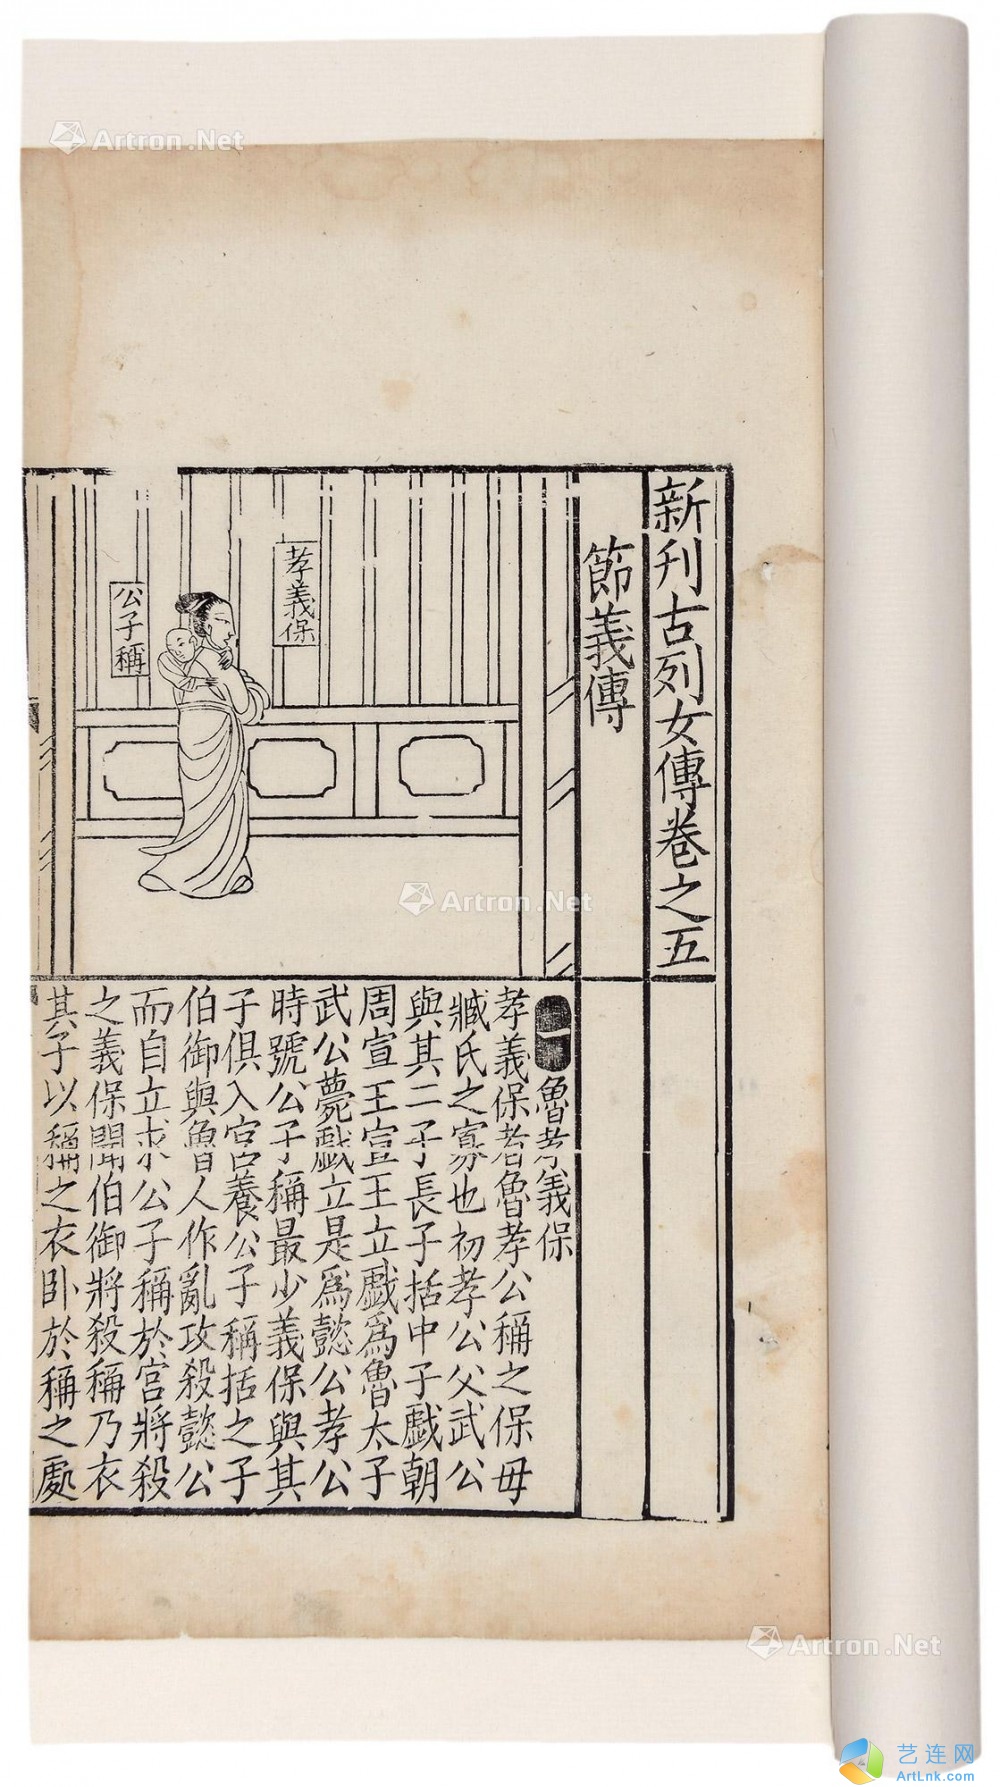 新刋古列女傳卷之五
節義傳
孝義保
公子稱
一 魯孝義保
孝義保者魯孝公稱之保毋
臧氏之寡也初孝公父武公
與其二子長子括中子戱朝
周宣王宣王立戱爲魯太子
武公薨戱立是爲懿公孝公
時號公子稱最少義保與其
子俱入宮養公子稱括之子
伯御與魯人作亂攻殺懿公
而自立求公子稱於宮將殺
之義保聞伯御將殺稱乃衣
其子以稱之衣卧於稱之處
Artron.Net
Artron.Net
Artron.Net
艺连网
ArtLnk.com